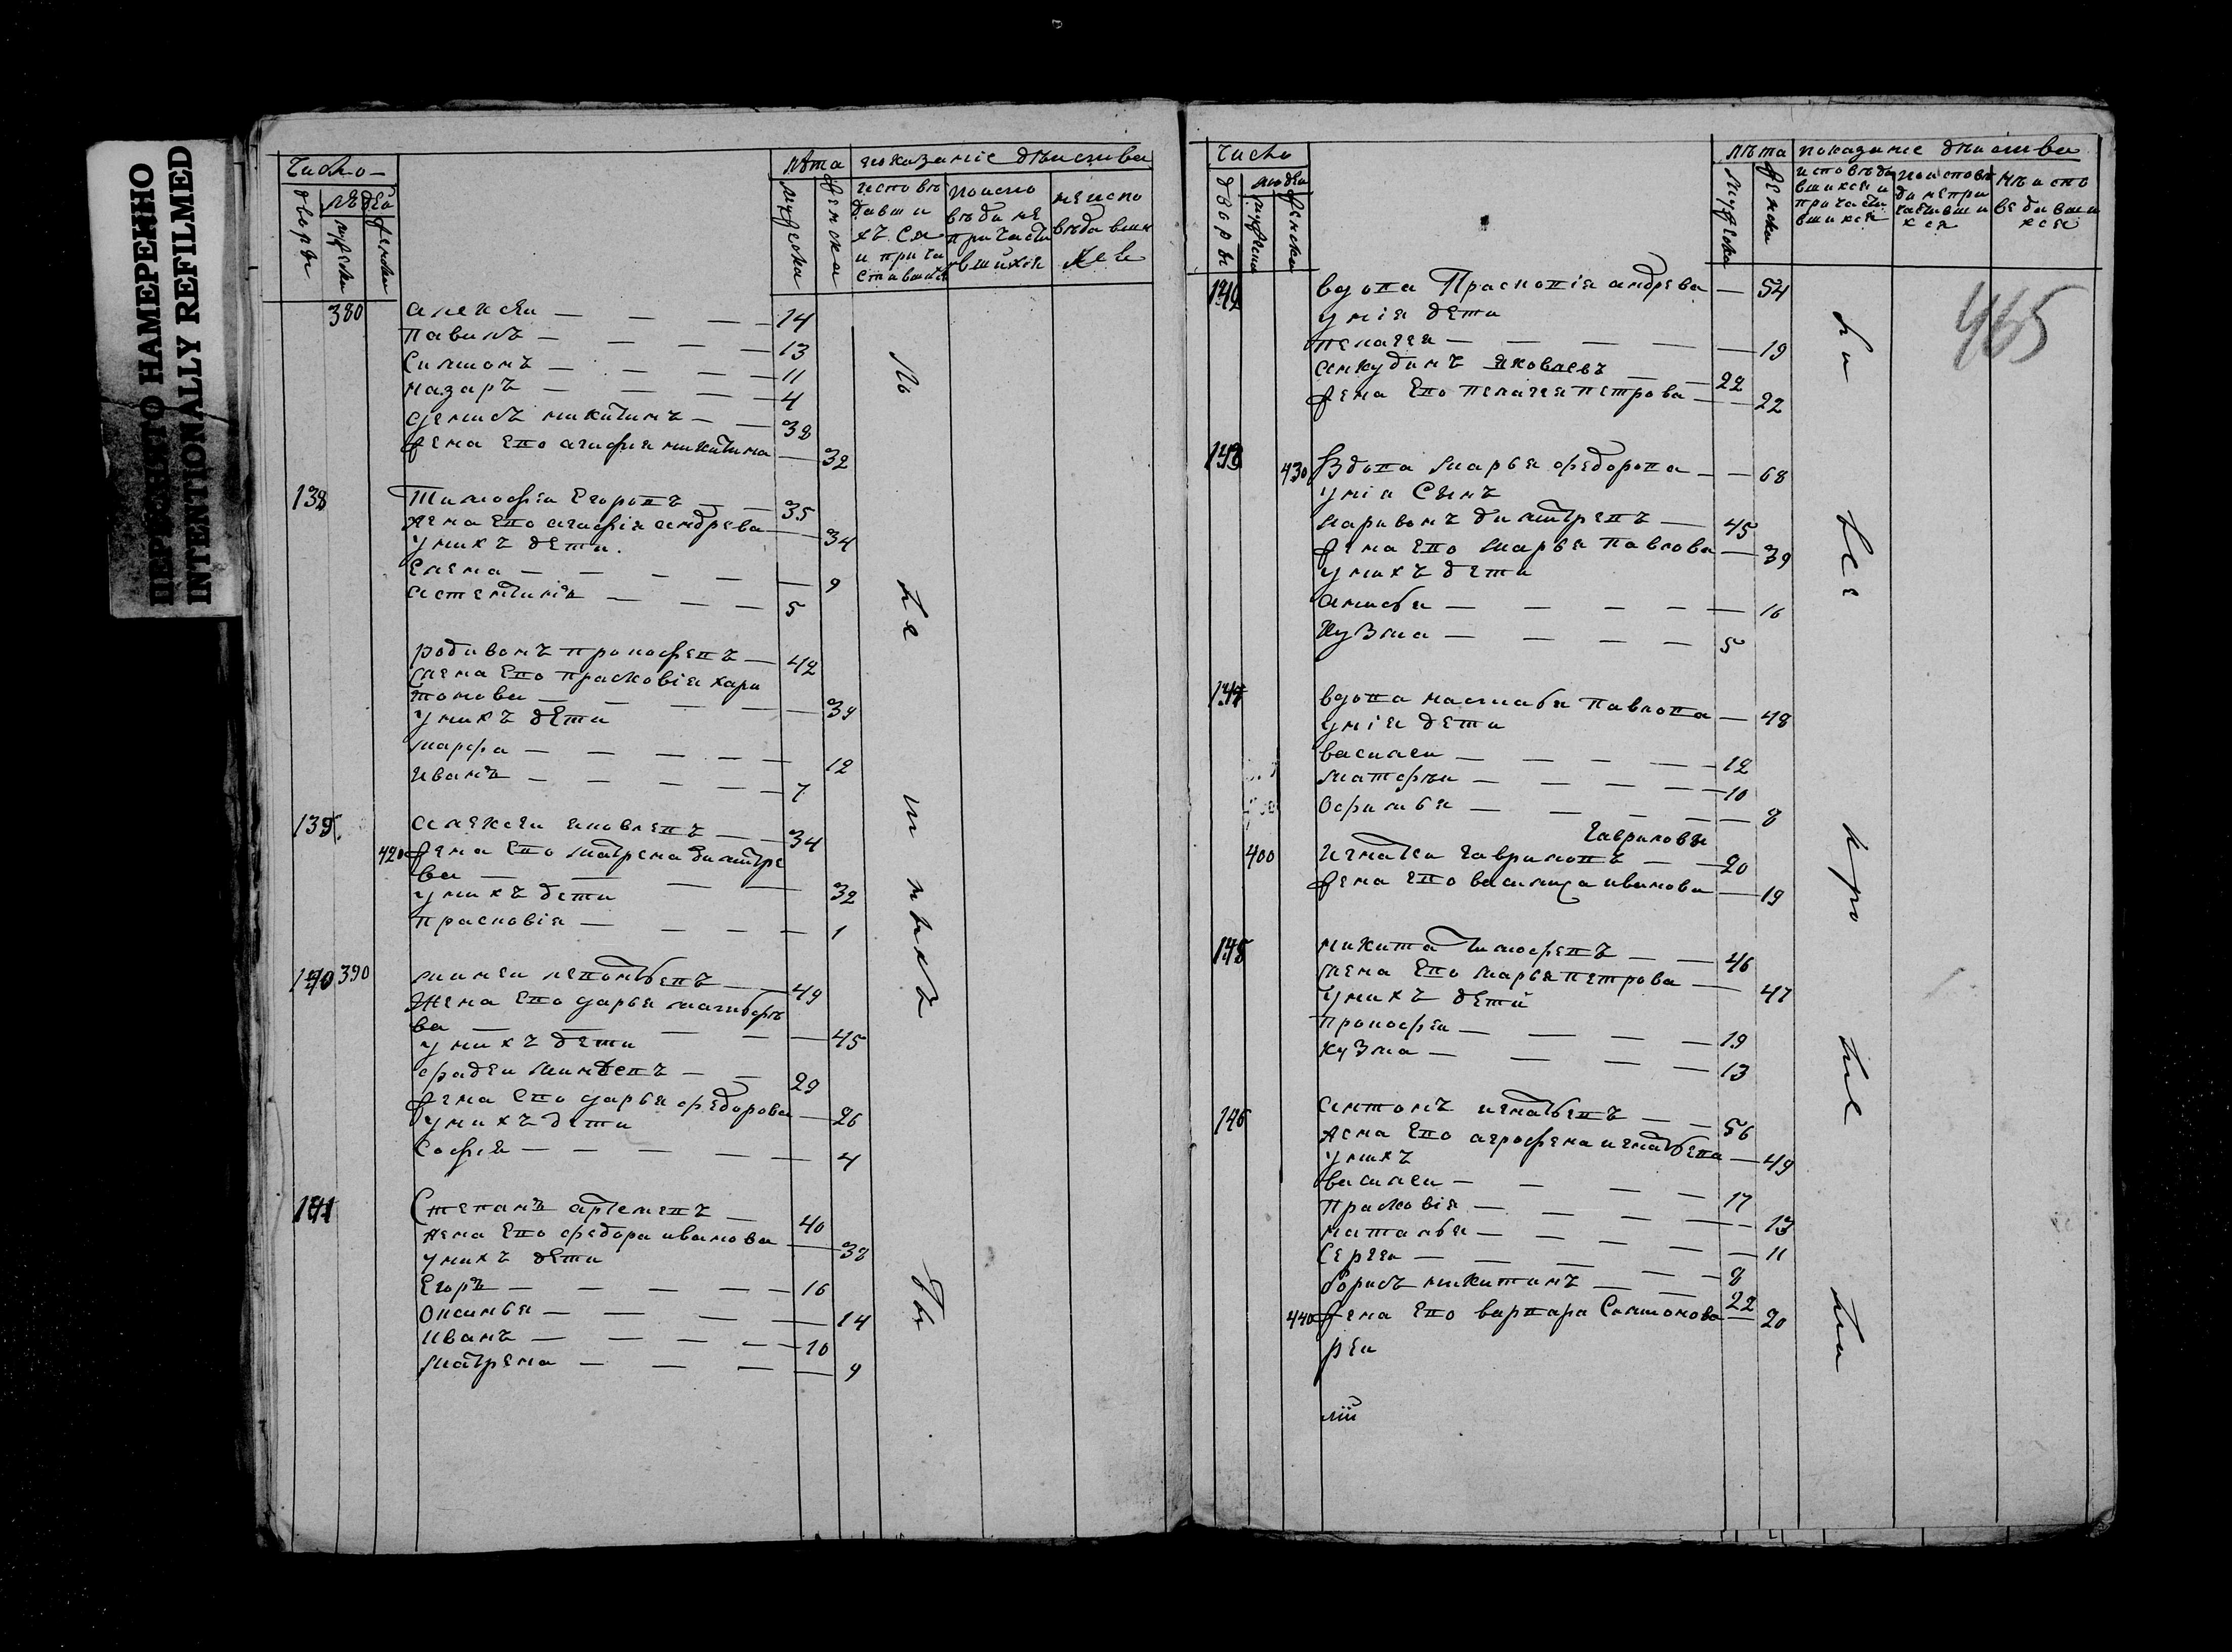 ПЕРЕСНЯТО НАМЕРЕННО
INTENTIONALLY REFILMED
число
лѣта показаніе дѣиства
дворы
людеи
мужеска
женска
мужеска
женска
исповѣдавшихъся и причастившихся
исповедане причастившихся
неисповѣдавшихся
380 алексеи — 14
павилъ — 13
симионъ — 11
назаръ — 4
денисъ никитинъ — 38
жена его агафия никитина — 32
138 Тимофеи Егоровъ — 35
жена его агафия андрева — 34
у нихъ дети
Елена — 9
5
родивонъ прокофевъ — 42
жена его прасковіа хари
тонова — 39
у нихъ дети
марфа — 12
иванъ — 7
139 алексеи яковлевъ — 34
420 жена его матрена димтре
ва — 32
у нихъ дети
прасковіа — 1
140 390 минеи леонтьевъ — 49
Жена его дарья матвѣе
ва — 45
у нихъ дети
фадеи минеевъ — 29
жена его дарья федорова — 26
у нихъ дети
Софья — 4
141 Степанъ артемевъ — 40
жена его федора иванова — 38
у нихъ дети
Егоръ — 16
Онисимья — 14
иванъ — 10
матрена — 9
число
лѣта показание дѣиства
дворы
людеи
мужеска
женска
мужеска
женска
исповѣдавшихся и причастившихся
исповѣдане причастившихся
неисповедавшихся
465
142 вдова Прасковіа андрева — 54
у ніа дети
пелагея — 19
анкудинъ яковлевъ — 22
жена его пелагея петрова — 22
143 430 Вдова марья федорова — 68
у ніа Сынъ
ларивонъ димтревъ — 45
жена его марья павлова — 39
у нихъ дети
анисья — 16
Кузма — 5
144 вдова настасья павлова — 48
у ніа дети
василеи — 12
матфѣи — 10
Офимья — 8
гавриловы
400 игнатеи гавриловъ — 20
жена его василиса иванова — 19
145 никита тимофевъ — 46
жена его марья петрова — 47
у нихъ дети
прокофеи — 19
кузма — 13
146 антонъ игнатьевъ — 56
жена его агрофена игнатьева — 49
у нихъ
василеи — 17
прасковіа — 13
наталья — 11
Сергеи — 8
борисъ никитинъ — 22
440 жена его варвара Симионова — 20
реи